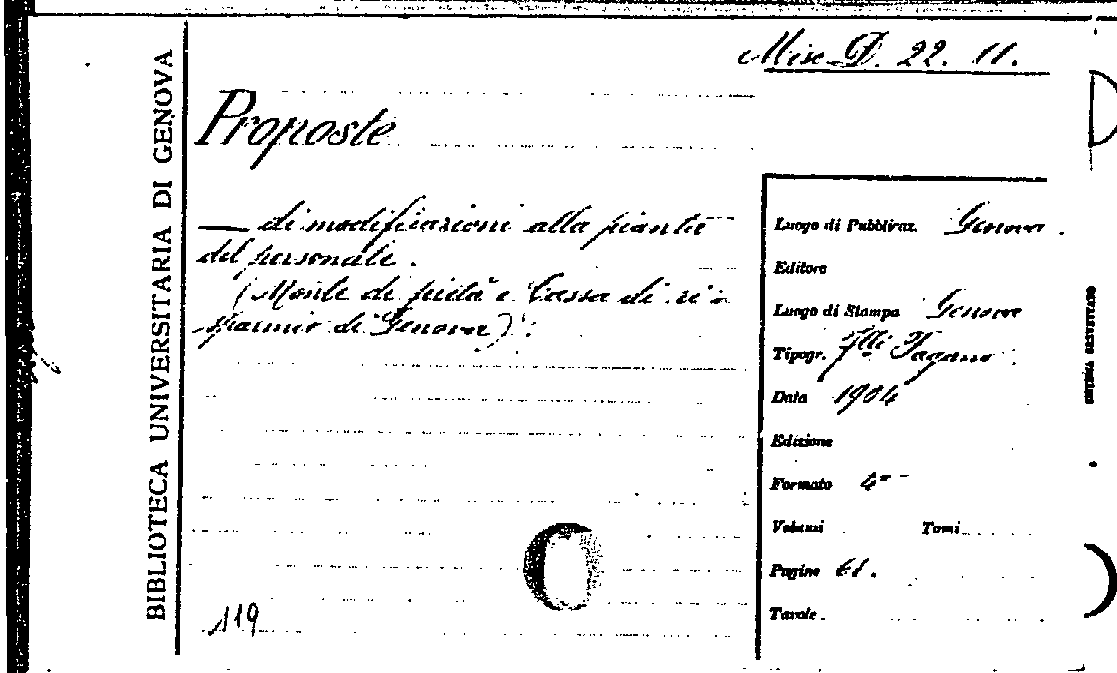 Misc. D. 22. 11.
BIBLIOTECA UNIVERSITARIA DI GENOVA
Proposte
— di modificazioni alla pianta
del personale.
(Monte di pietà e Cassa di ri-
sparmio di Genova).
119
Luogo di Pubblicaz. Genova.
Editore
Luogo di Stampa Genova
Tipogr. F.lli Pagano
Data 1904
Edizione
Formato 4°
Volumi Tomi
Pagine 61.
Tavole